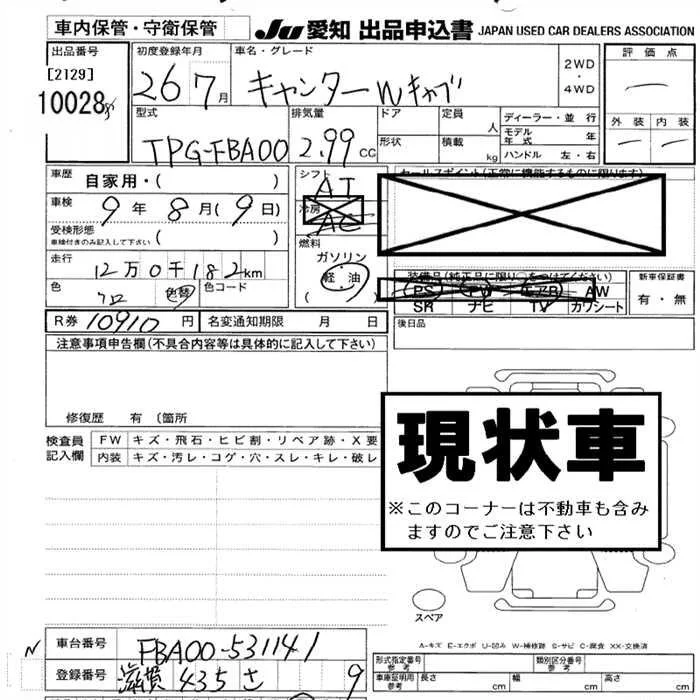 車内保管・守衛保管 JU 愛知 出品申込書 JAPAN USED CAR DEALERS ASSOCIATION
出品番号 初度登録年月 車名・グレード 評価点
[2129]
10028 26 7月 キャンターWキャブ 2WD・4WD
型式 排気量 ドア 定員 人 ディーラー・並行 外装 内装
TPG-FBA00 2.99 CC 形状 積載 kg モデル年式 年
ハンドル 左・右
車歴 自家用・( ) シフト AT セールスポイント(正常に機能するものに限ります)
車検 9年8月(9日) 冷房 AC
受検形態
車検付きのみ記入して下さい ( ) 燃料
ガソリン
軽油
( )
走行 12万0千182km
色 色替 色コード
装備品(純正品に限り○をつけてください) 新車保証書
PS PW エアB AW 有・無
SR ナビ TV カワシート
R券 10910円 名変通知期限 月 日 後日品
注意事項申告欄(不具合内容等は具体的に記入して下さい)
修復歴 有 (箇所
現状車
※このコーナーは不動車も含み
ますのでご注意下さい
検査員記入欄 FW キズ・飛石・ヒビ割・リペア跡・X要
内装 キズ・汚レ・コゲ・穴・スレ・キレ・破レ
スペア
A-キズ E-エクボ U-凹み W-補修跡 S-サビ C-腐食 XX-交換済
N 車台番号 FBA00-531141
登録番号 滋賀 435 さ 9
形式指定番号 参考 類別区分番号 参考
車庫証明用 参考 長さ cm 幅 cm 高さ cm